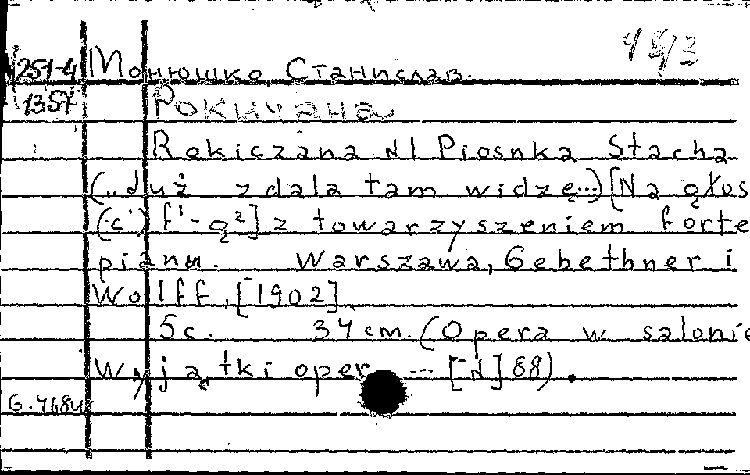 251-4 Монюшко, Станислав.
1357 Рокичана
Rokiczana N1 Piosnka Stacha
(„Już zdala tam widzę...) [Na głos
(c') f'-g²] z towarzyszeniem forte
pianu. Warszawa, Gebethner i
Wolff, [1902]
5c. 34 cm. (Opera w salonie
Wyjątki oper ... [N] 88).